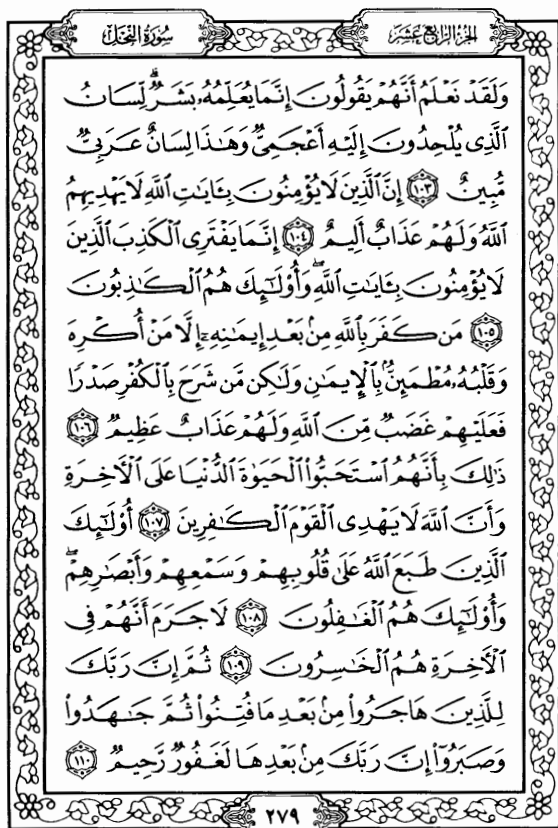 سُورَةُ النَّحْلِ
الجُزْءُ الرَّابِعَ عَشَرَ
وَلَقَدۡ نَعۡلَمُ أَنَّهُمۡ يَقُولُونَ إِنَّمَا يُعَلِّمُهُۥ بَشَرٞۗ لِّسَانُ
ٱلَّذِي يُلۡحِدُونَ إِلَيۡهِ أَعۡجَمِيّٞ وَهَٰذَا لِسَانٌ عَرَبِيّٞ
مُّبِينٌ ١٠٣ إِنَّ ٱلَّذِينَ لَا يُؤۡمِنُونَ بِـَٔايَٰتِ ٱللَّهِ لَا يَهۡدِيهِمُ
ٱللَّهُ وَلَهُمۡ عَذَابٌ أَلِيمٌ ١٠٤ إِنَّمَا يَفۡتَرِي ٱلۡكَذِبَ ٱلَّذِينَ
لَا يُؤۡمِنُونَ بِـَٔايَٰتِ ٱللَّهِۖ وَأُوْلَٰٓئِكَ هُمُ ٱلۡكَٰذِبُونَ
١٠٥ مَن كَفَرَ بِٱللَّهِ مِنۢ بَعۡدِ إِيمَٰنِهِۦٓ إِلَّا مَنۡ أُكۡرِهَ
وَقَلۡبُهُۥ مُطۡمَئِنُّۢ بِٱلۡإِيمَٰنِ وَلَٰكِن مَّن شَرَحَ بِٱلۡكُفۡرِ صَدۡرٗا
فَعَلَيۡهِمۡ غَضَبٞ مِّنَ ٱللَّهِ وَلَهُمۡ عَذَابٌ عَظِيمٞ ١٠٦
ذَٰلِكَ بِأَنَّهُمُ ٱسۡتَحَبُّواْ ٱلۡحَيَوٰةَ ٱلدُّنۡيَا عَلَى ٱلۡأٓخِرَةِ
وَأَنَّ ٱللَّهَ لَا يَهۡدِي ٱلۡقَوۡمَ ٱلۡكَٰفِرِينَ ١٠٧ أُوْلَٰٓئِكَ
ٱلَّذِينَ طَبَعَ ٱللَّهُ عَلَىٰ قُلُوبِهِمۡ وَسَمۡعِهِمۡ وَأَبۡصَٰرِهِمۡۖ
وَأُوْلَٰٓئِكَ هُمُ ٱلۡغَٰفِلُونَ ١٠٨ لَا جَرَمَ أَنَّهُمۡ فِي
ٱلۡأٓخِرَةِ هُمُ ٱلۡخَٰسِرُونَ ١٠٩ ثُمَّ إِنَّ رَبَّكَ
لِلَّذِينَ هَاجَرُواْ مِنۢ بَعۡدِ مَا فُتِنُواْ ثُمَّ جَٰهَدُواْ
وَصَبَرُوٓاْ إِنَّ رَبَّكَ مِنۢ بَعۡدِهَا لَغَفُورٞ رَّحِيمٞ ١١٠
٢٧٩